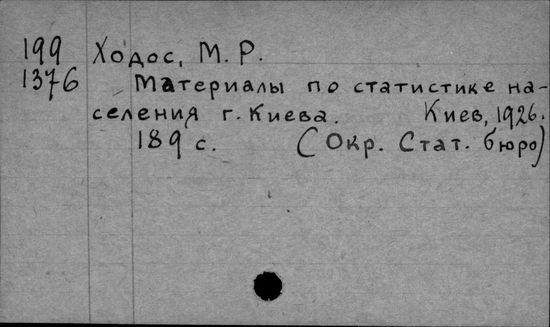 199 Ходос, М. Р.
1376 Материалы по статистике на-
селения г. Киева. Киев, 1926.
189 с. (Окр. Стат. бюро)